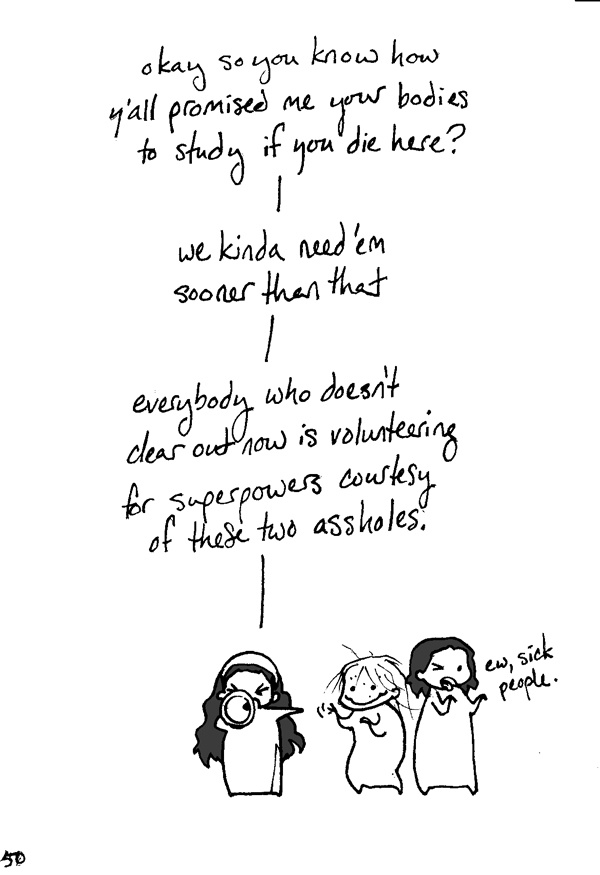 okay so you know how
y'all promised me your bodies
to study if you die here?
we kinda need 'em
sooner than that
everybody who doesn't
clear out now is volunteering
for superpowers courtesy
of these two assholes.
ew, sick
people.
50